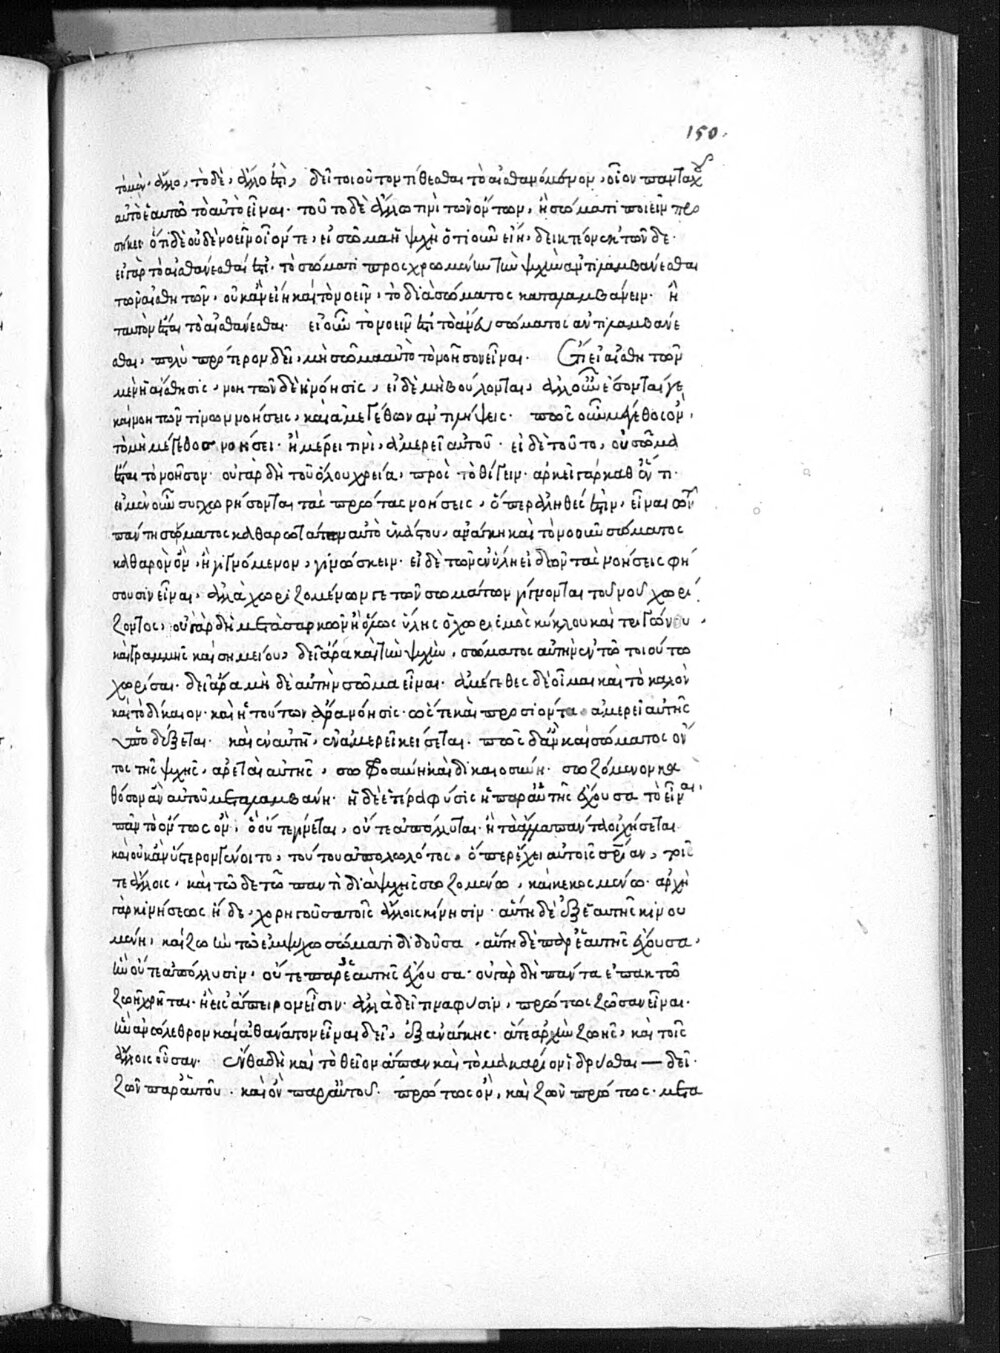 τὸ μὲν ἄλλο, τὸ δὲ, ἄλλο ἐστὶ, δεῖ τοιοῦτον τίθεσθαι τὸ αἰσθανόμενον, οἷον πανταχοῦ
αὐτὸ ἑαυτῷ τὸ αὐτὸ εἶναι. τοῦτο δὲ ἄλλω τινὶ τῶν ὄντων, ἢ σώματι ποιεῖν προ
σήκει· ὅτι δὲ οὐδὲ νοεῖν οἷόν τε, εἰ σῶμα ἡ ψυχὴ ὁτιοῦν εἴη, δεικτέον ἐκ τῶν δε·
εἰ γὰρ τὸ αἰσθάνεσθαί ἐστι, τὸ σώματι προσχρωμένην τὴν ψυχὴν ἀντιλαμβάνεσθαι
τῶν αἰσθητῶν, οὐκ ἂν εἴη καὶ τὸ νοεῖν, τὸ διὰ σώματος καταλαμβάνειν. ἢ
ταυτὸν ἔσται τὸ αἰσθάνεσθαι. εἰ οὖν τὸ νοεῖν ἐστὶ τὸ ἄνευ σώματος ἀντιλαμβάνε
σθαι, πολὺ πρότερον δεῖ, μὴ σῶμα αὐτὸ τὸ νοῆσον εἶναι. Ἔτι εἰ αἰσθητῶν
μὲν ἡ αἴσθησις, νοητῶν δὲ ἡ νόησις, εἰ δὲ μὴ βούλονται, ἀλλ' οὖν ἔσονταί γε
καὶ νοητῶν τινῶν νοήσεις, καὶ ἀμεγέθων ἀντιλήψεις. πῶς οὖν μέγεθος ὂν,
τὸ μὴ μέγεθος νοήσει· ἢ μέρει τινὶ, ἀμερεῖ αὐτοῦ· εἰ δὲ τοῦτο, οὐ σῶμα
ἔσται τὸ νοῆσον· οὐ γὰρ δὴ τοῦ ὅλου χρεία, πρὸς τὸ θίγειν. ἀρκεῖ γὰρ καθ' ἕν τι·
εἰ μὲν οὖν συγχωρήσονται τὰς πρώτας νοήσεις, ὅπερ ἀληθές ἐστιν, εἶναι τῶν
πάντη σώματος καθαρωτάτων αὐτὸ ἑκάστου, ἀνάγκη καὶ τὸ νοοῦν σώματος
καθαρὸν ὂν, ἢ γιγνόμενον, γινώσκειν. εἰ δὲ τῶν ἐν ὕλη εἰδῶν τὰς νοήσεις φή
σουσιν εἶναι, ἀλλὰ χωριζομένων γε τῶν σωμάτων γίγνονται τοῦ νοῦ χωρί
ζοντος, οὐ γὰρ δὴ μετὰ σαρκῶν ἢ ὅλως ὕλης ὁ χωρισμὸς κύκλου καὶ τριγώνου
καὶ γραμμῆς καὶ σημείου, δεῖ ἄρα καὶ τὴν ψυχὴν, σώματος αὑτὴν ἐν τῶ τοιούτω
χωρίσαι. δεῖ ἄρα μὴ δὲ αὐτὴν σῶμα εἶναι. ἀμέγεθες δὲ οἶμαι καὶ τὸ καλὸν
καὶ τὸ δίκαιον. καὶ ἡ τούτων ἄρα νόησις. ὥστε καὶ προσιόντα ἀμερεῖ αὐτῆς
ὑποδέξεται. καὶ ἐν αὐτῆ, ἐν ἀμερεῖ κείσεται. πῶς δ' ἂν καὶ σώματος ὄν
τος τῆς ψυχῆς, ἀρεταὶ αὐτῆς, σωφροσύνη καὶ δικαιοσύνη. σωζόμενον κα
θόσον ἂν αὐτοῦ μεταλαμβάνη. ἡ δὲ ἑτέρα φύσις ἡ παρ' αὑτῆς ἔχουσα τὸ εἶναι,
πᾶν τὸ ὄντως ὄν, ὃ οὔτε γίνεται, οὔτε ἀπόλλυται. ἢ τὰ ἄλλα πάντα οἰχήσεται
καὶ οὐκ ἂν ὕστερον γένοιτο, τούτου ἀπολωλότος, ὃ παρέχει αὐτοῖς σωτηρίαν, τοῖς
τε ἄλλοις, καὶ τῶ δε τῶ παντὶ διὰ ψυχῆς σωζομένω, καὶ κεκοσμένω. ἀρχὴ
γὰρ κινήσεως ἥ δε, χορηγοῦσα τοῖς ἄλλοις κίνησιν. αὕτη δὲ ἐξ ἑαυτῆς κινου
μένη, καὶ ζωὴν τῶ ἐμψύχω σώματι διδοῦσα, αὕτη δὲ παρ' ἑαυτῆς ἔχουσα,
ἣν οὔτε ἀπόλλυσιν, οὔτε παρ' ἑαυτῆς ἔχουσα. οὐ γὰρ δὴ πάντα ἐπακτῶ
ζωῆ χρῆται. ἢ εἰς ἄπειρον εἶσιν. ἀλλὰ δεῖ τινα φύσιν, πρώτως ζῶσαν εἶναι.
ἣν ἀνώλεθρον καὶ ἀθάνατον εἶναι δεῖ, ἐξ ἀνάγκης. ἅτε ἀρχὴν ζωῆς, καὶ τοῖς
ἄλλοις οὖσαν. ἔνθα δὴ καὶ τὸ θεῖον ἅπαν καὶ τὸ μακάριον ἱδρύσθαι — δεῖ.
ζῶν παρ' αὑτοῦ. καὶ ὂν παρ' αὑτοῦ. πρώτως ὂν, καὶ ζῶν πρώτως. μετα
150.